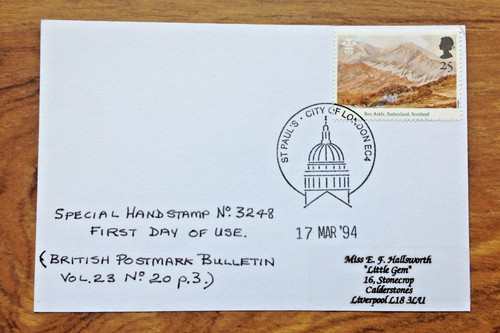 25
Ben Arkle, Sutherland, Scotland
ST PAUL'S · CITY OF LONDON EC4
17 MAR '94
SPECIAL HANDSTAMP Nº 3248
FIRST DAY OF USE.
(BRITISH POSTMARK BULLETIN
VOL.23 Nº 20 p.3.)
Miss E. F. Hallsworth
"Little Gem"
16, Stonecrop
Calderstones
Liverpool L18 3LU